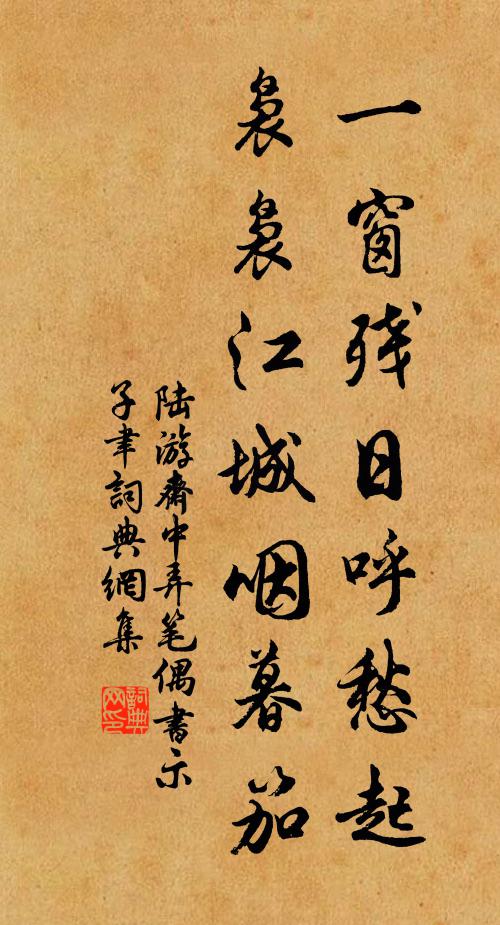 一窗残日呼愁起
袅袅江城咽暮笳
陆游斋中弄笔偶书示
子聿詞典網集
詞典
网印